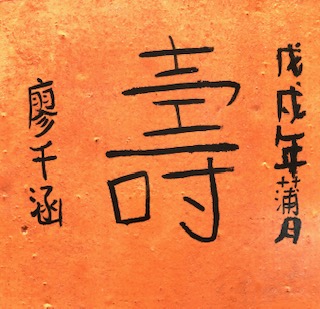 戊戌年蒲月
壽
廖千涵